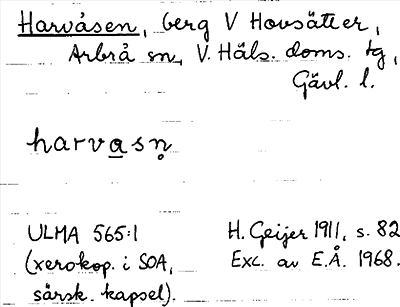 Harvåsen, berg V Hovsätter,
Arbrå sn, V. Häls. doms. tg,
Gävl. l.
harvasṇ
ULMA 565:1
(xerokop. i SOA,
särsk. kapsel).
H. Geijer 1911, s. 82
Exc. av E.Å. 1968.